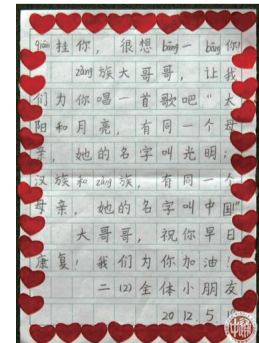 qiān挂你，很想bāng一bāng你！
zàng族大哥哥，让我
们为你唱一首歌吧“太
阳和月亮，有同一个母
亲，她的名字叫光明；
汉族和zàng族，有同一个
母亲，她的名字叫中国”
大哥哥，祝你早日
康复！我们为你加油！
二(2)全体小朋友
2012.5